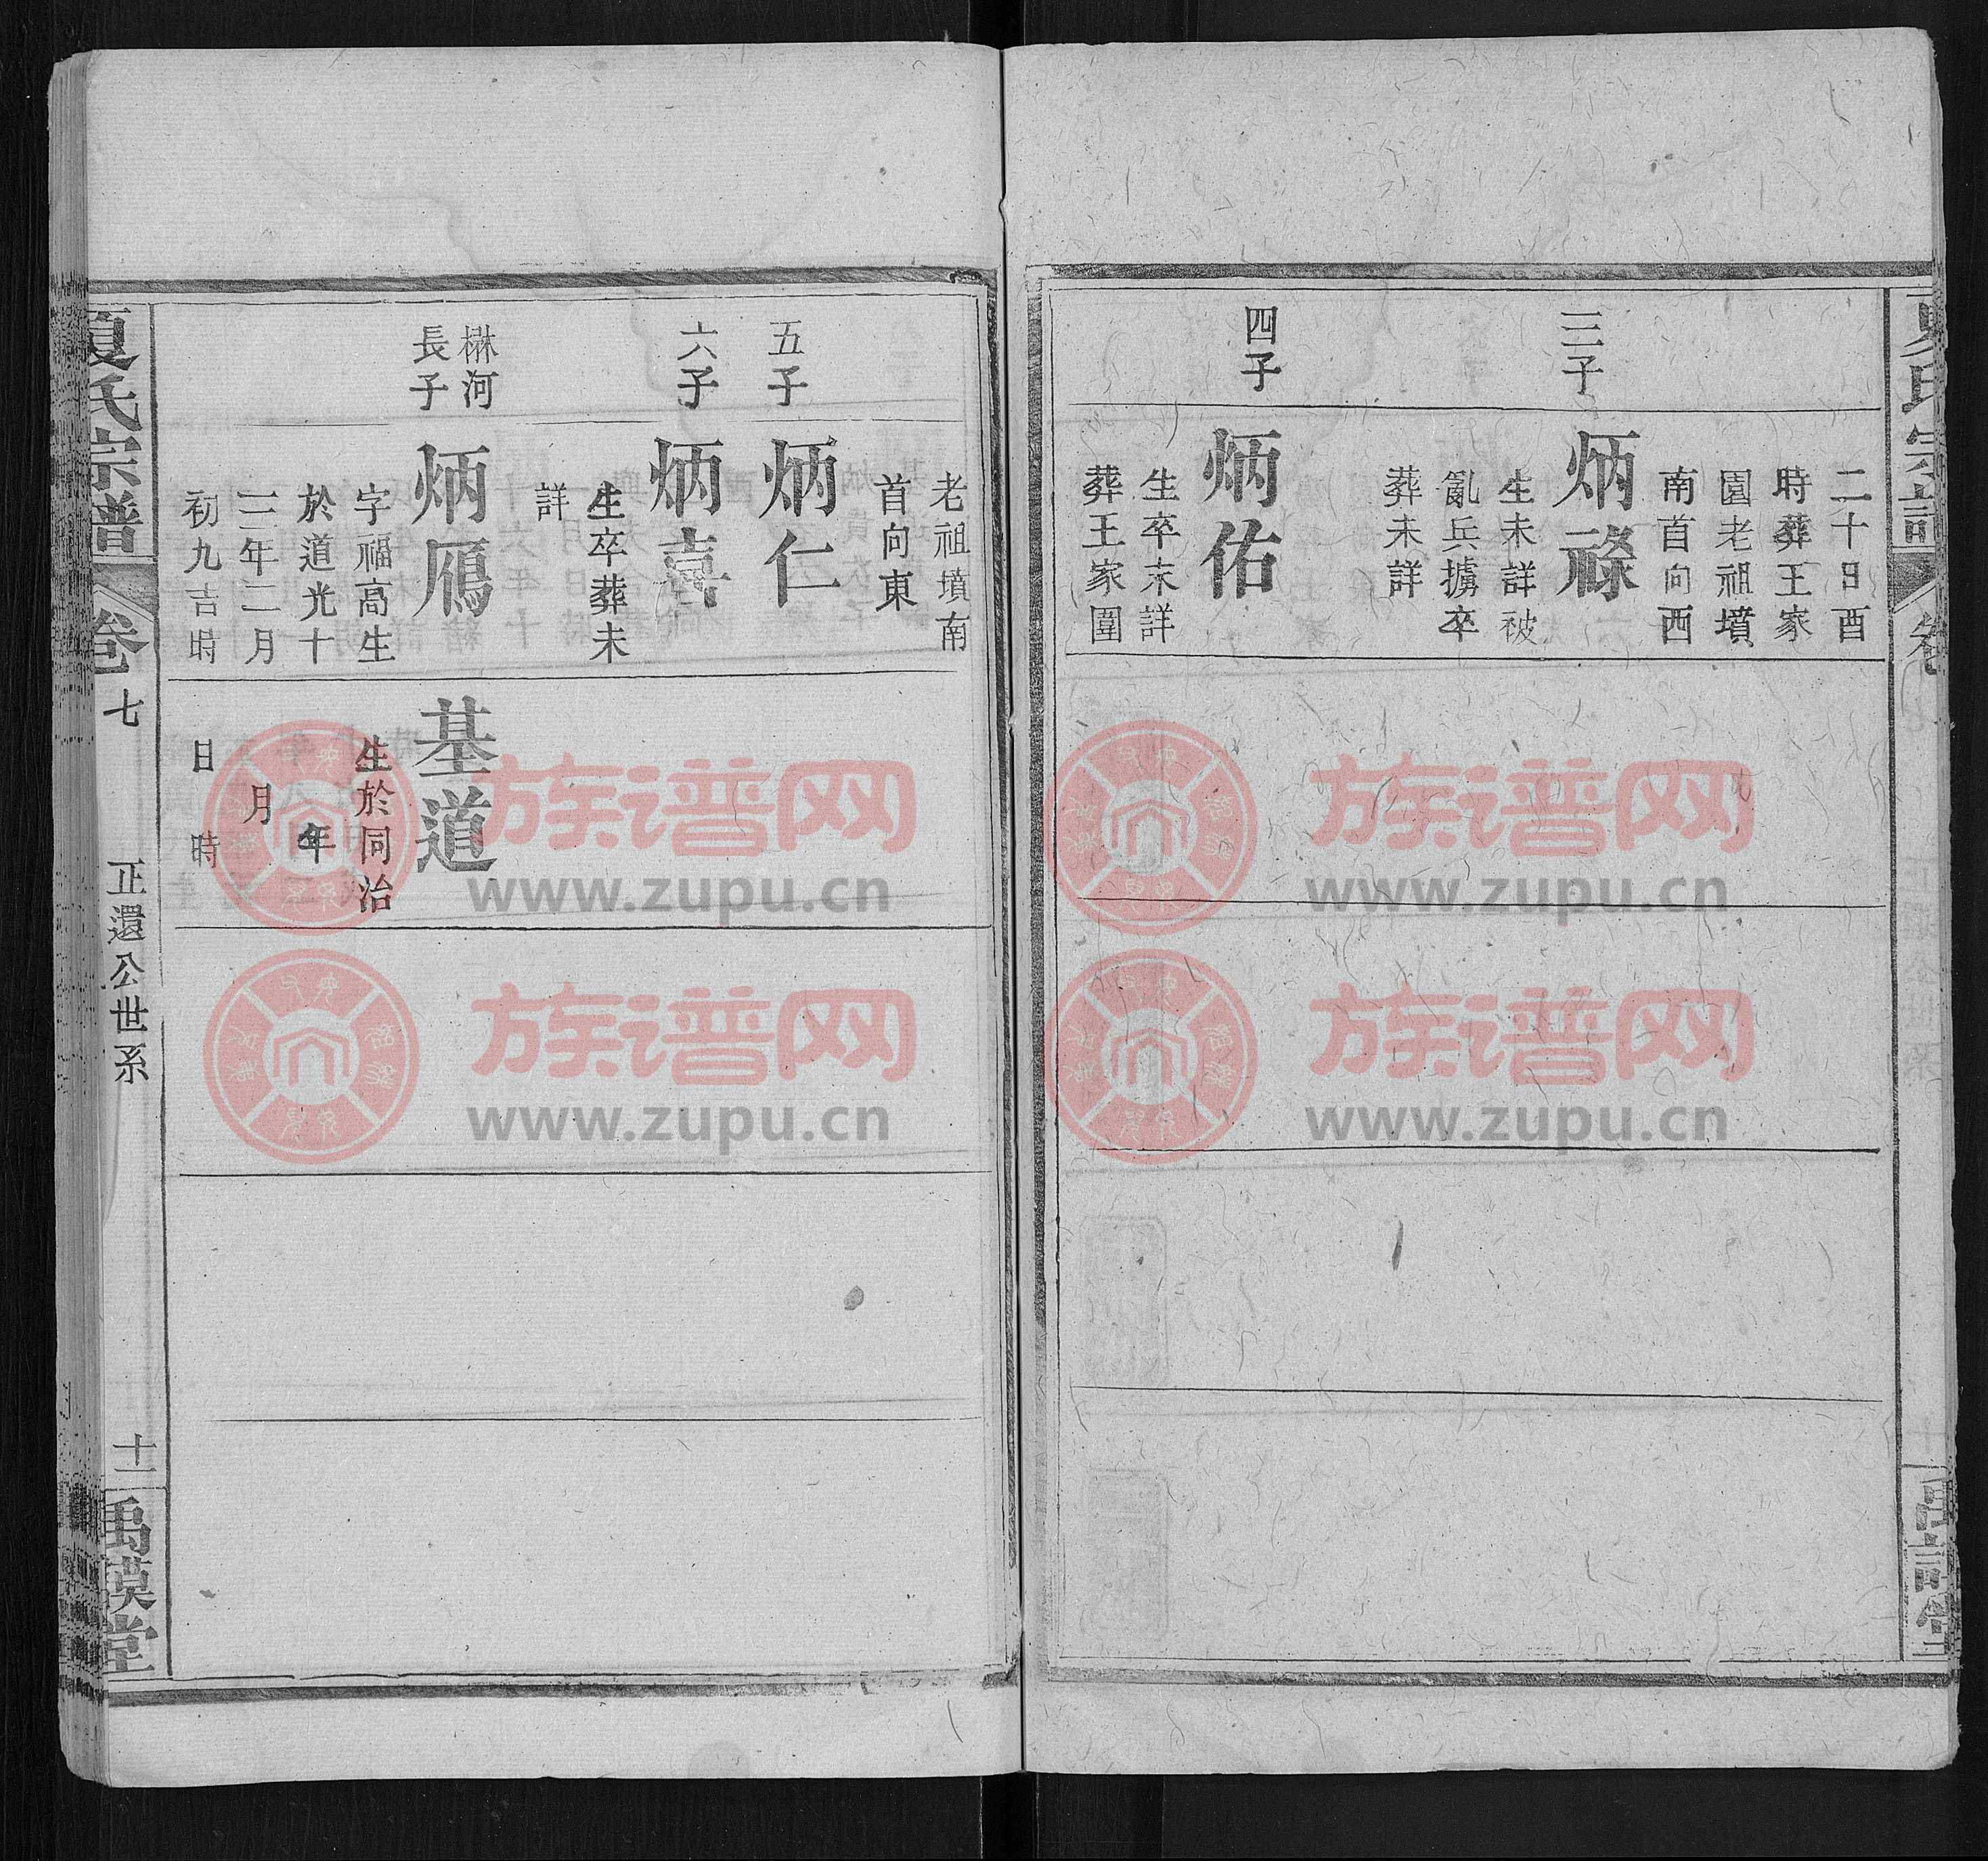 夏氏宗譜
卷
禹謨堂
二十日酉
時葬王家
園老祖墳
南首向西
三子
炳祿
生未詳被
亂兵擄卒
葬未詳
四子
炳佑
生卒未詳
葬王家圍
老祖墳南
首向東
五子
炳仁
六子
炳喜
生卒葬未
詳
楙河
長子
炳鴈
字福高生
於道光十
二年二月
初九吉時
基道
生於同治
年
月
日 時
夏氏宗譜
卷七
正還公世系
十一
禹謨堂
族谱网
www.zupu.cn
族谱网
www.zupu.cn
族谱网
www.zupu.cn
族谱网
www.zupu.cn